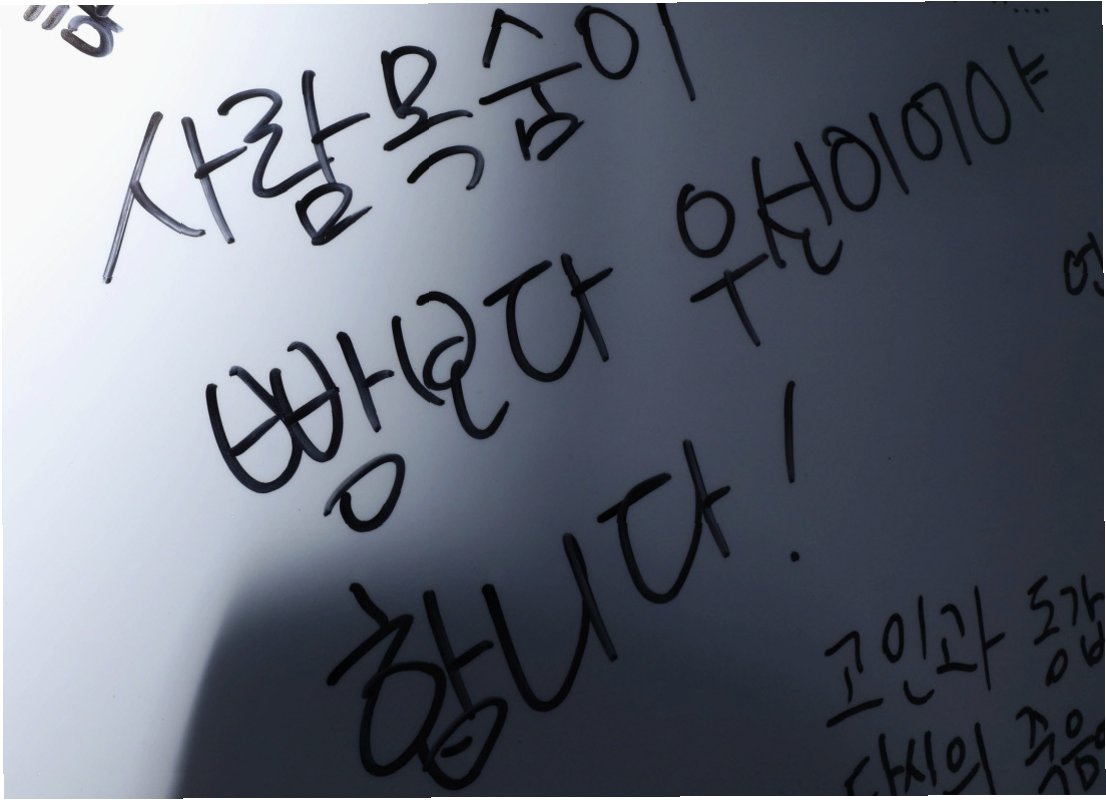 사람 목숨이
빵보다 우선이어야
합니다!
고인과 동갑